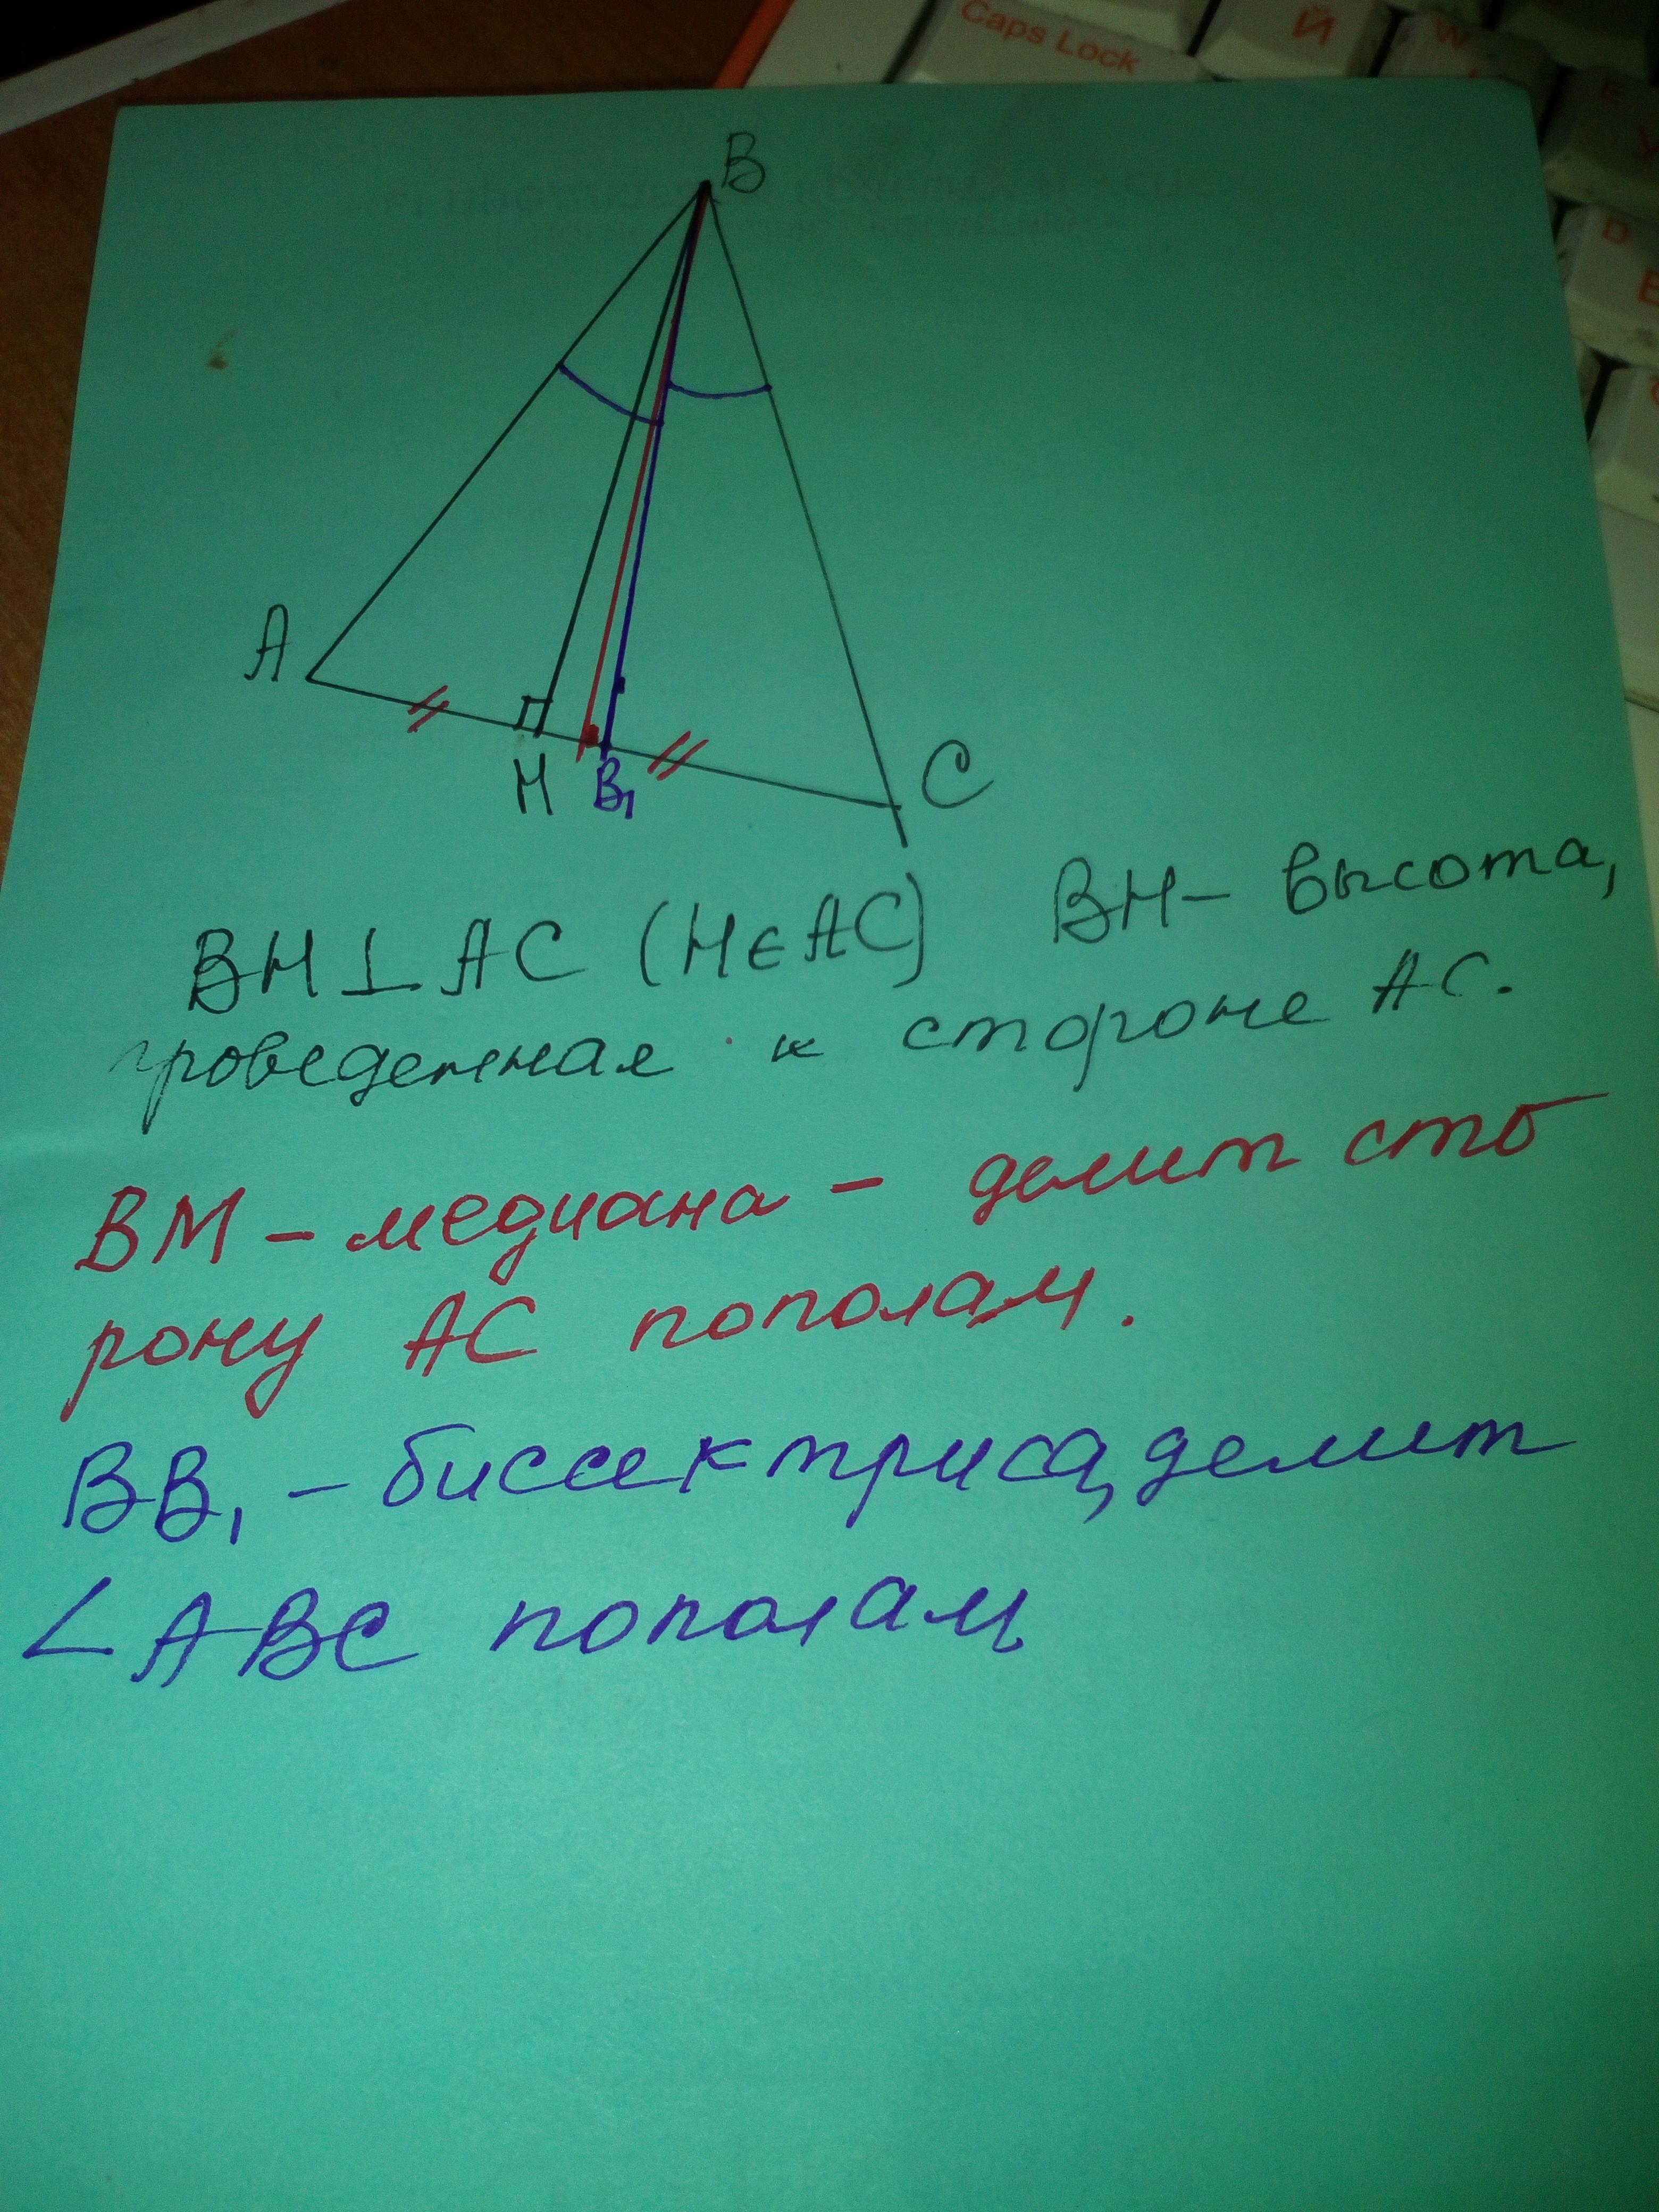 Caps Lock
Й
W
E
У
D
В
A
H
B₁
C
BH⊥AC (H∈AC) BH – высота,
проведенная к стороне AC.
BM – медиана – делит сто
рону AC пополам.
BB₁ – биссектриса, делит
∠ABC пополам